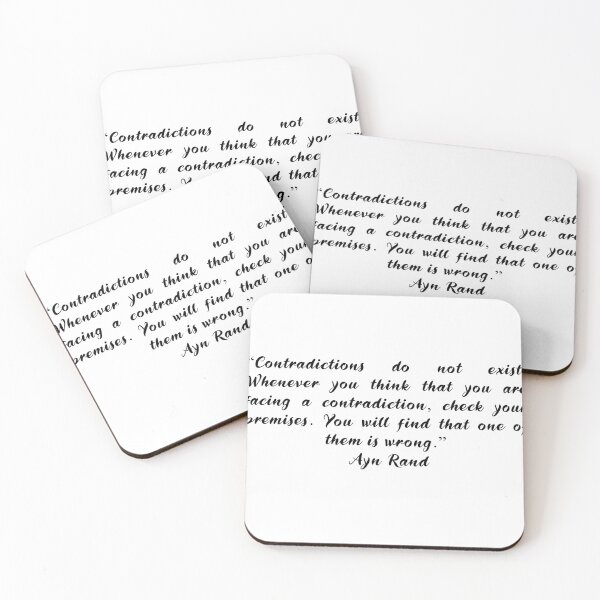 “Contradictions do not exist
Whenever you think that you
facing a contradiction, check
premises. that
“Contradictions do not exist
Whenever you think that you are
facing a contradiction, check you
premises. You will find that one o
them is wrong.”
Ayn Rand
“Contradictions do not exist
Whenever you think that you are
facing a contradiction, check you
premises. You will find that one o
them is wrong.”
Ayn Rand
“Contradictions do not exist
Whenever you think that you are
facing a contradiction, check you
premises. You will find that one o
them is wrong.”
Ayn Rand